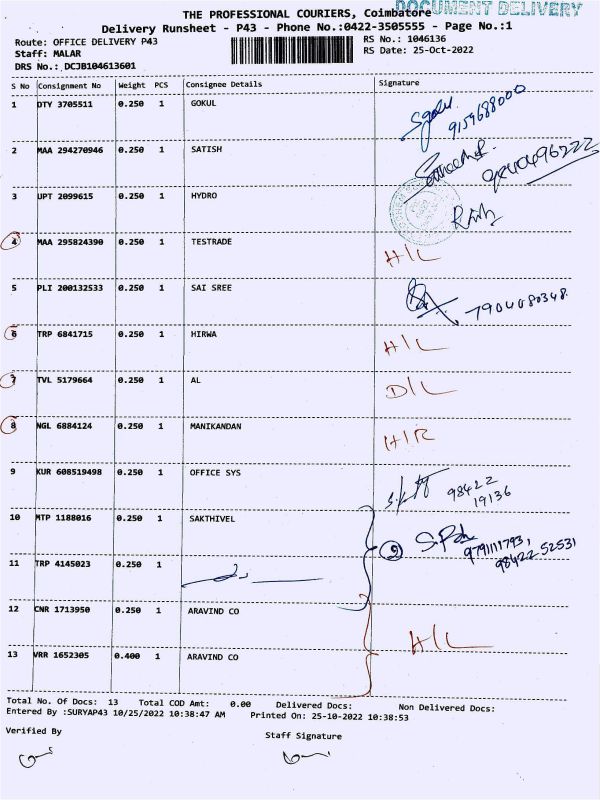 DOCUMENT DELIVERY
THE PROFESSIONAL COURIERS, Coimbatore
Delivery Runsheet - P43 - Phone No.:0422-3505555 - Page No.:1
Route: OFFICE DELIVERY P43 RS No.: 1046136
Staff: MALAR RS Date: 25-Oct-2022
DRS No.: DCJB104613601
S No Consignment No Weight PCS Consignee Details Signature
1 DTY 3705511 0.250 1 GOKUL 9159688000
2 MAA 294270946 0.250 1 SATISH
3 UPT 2099615 0.250 1 HYDRO
4 MAA 295824390 0.250 1 TESTRADE H/L
5 PLI 200132533 0.250 1 SAI SREE
6 TRP 6841715 0.250 1 HIRWA H/L
7 TVL 5179664 0.250 1 AL D/L
8 NGL 6884124 0.250 1 MANIKANDAN H/R
9 KUR 608519498 0.250 1 OFFICE SYS 98422 19136
10 MTP 1188016 0.250 1 SAKTHIVEL 9791111793, 98422 52531
11 TRP 4145023 0.250 1
12 CNR 1713950 0.250 1 ARAVIND CO H/L
13 VRR 1652305 0.400 1 ARAVIND CO
Total No. Of Docs: 13 Total COD Amt: 0.00 Delivered Docs: Non Delivered Docs:
Entered By :SURYAP43 10/25/2022 10:38:47 AM Printed On: 25-10-2022 10:38:53
Verified By Staff Signature